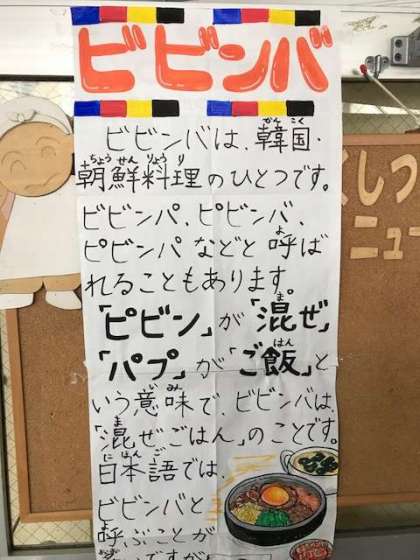 ビビンバ
ビビンバは、韓国・
朝鮮料理のひとつです。
ビビンパ、ピビンバ、
ピビンパなどと呼ば
れることもあります。
「ピビン」が「混ぜ」
「パプ」が「ご飯」と
いう意味で、ビビンバは、
「混ぜごはん」のことです。
日本語では、
ビビンバと
呼ぶことが